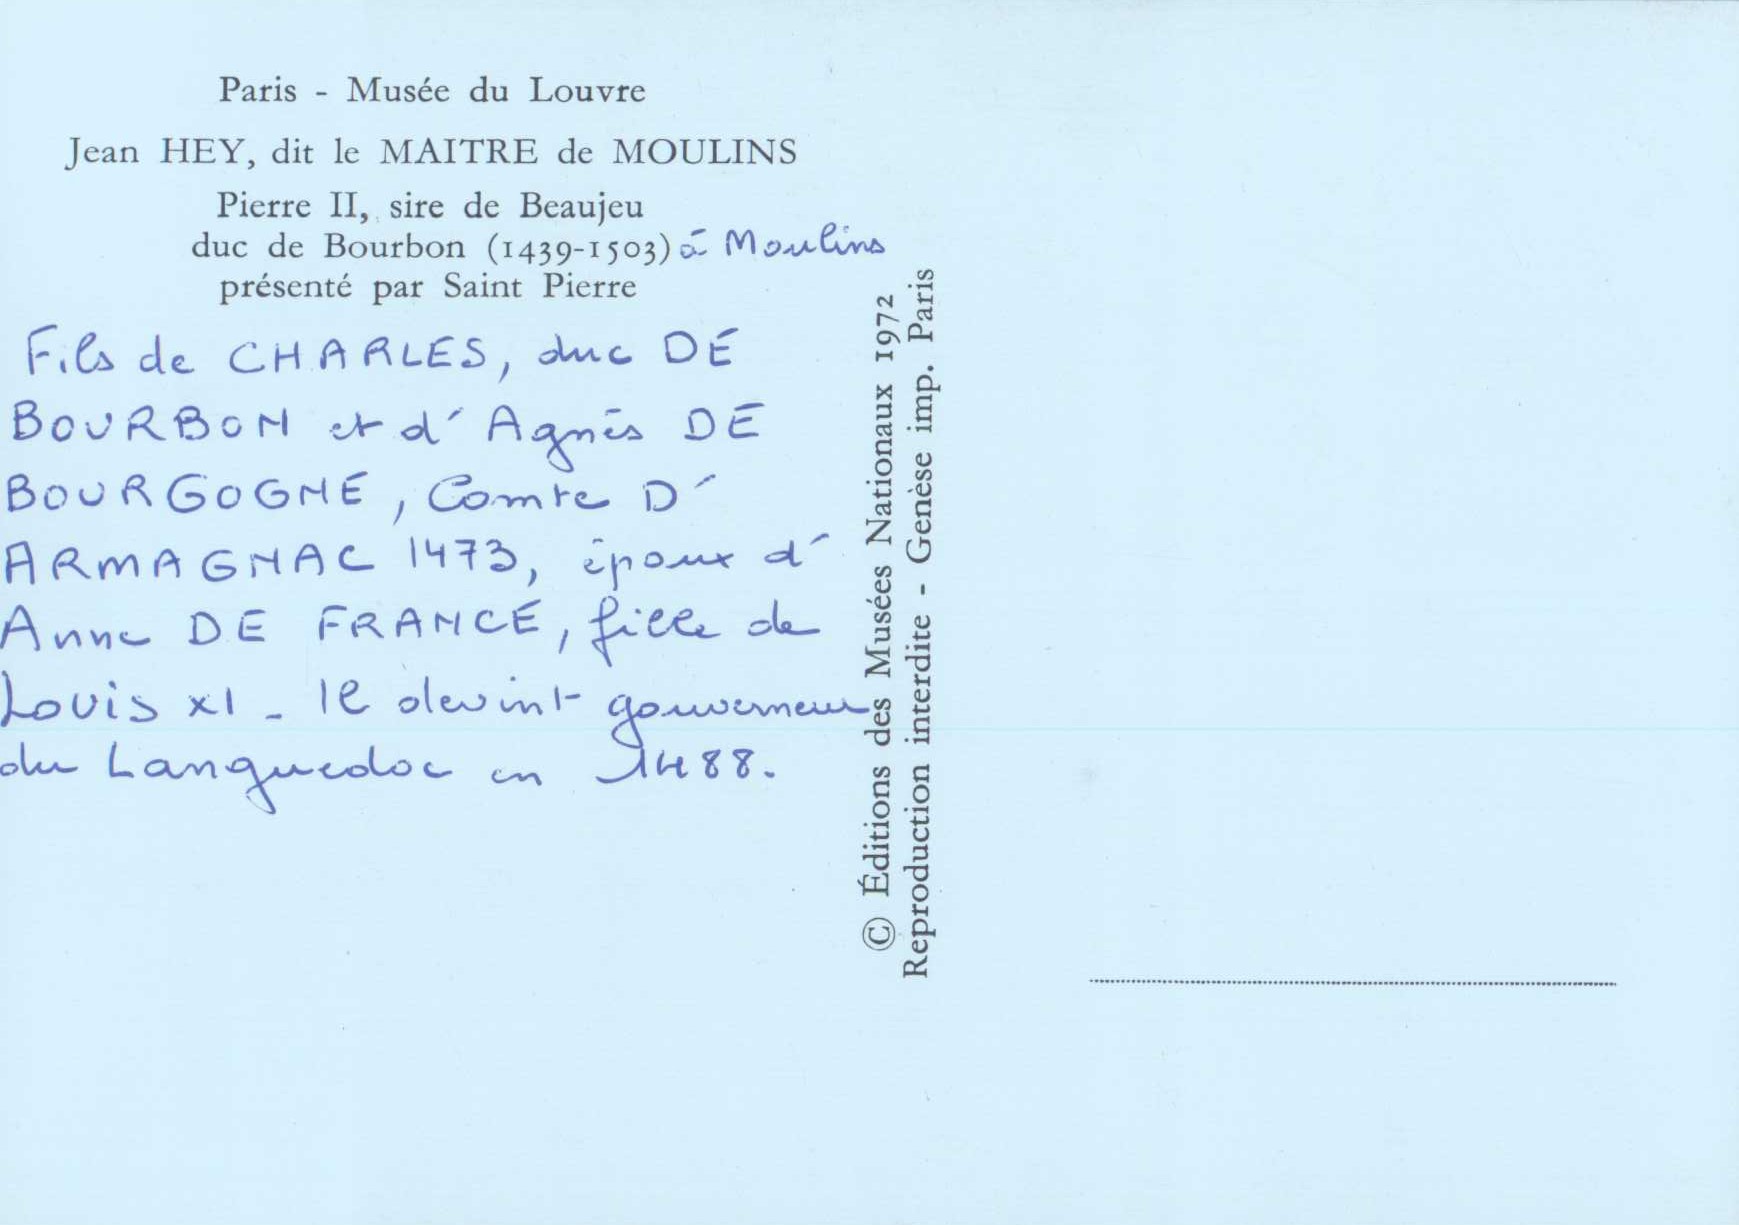 Paris - Musée du Louvre
Jean HEY, dit le MAITRE de MOULINS
Pierre II, sire de Beaujeu
duc de Bourbon (1439-1503) à Moulins
présenté par Saint Pierre
Fils de CHARLES, duc DE
BOURBON et d' Agnès DE
BOURGOGNE, Comte D'
ARMAGNAC 1473, époux d'
Anne DE FRANCE, fille de
Louis XI - Il devint gouverneur
du Languedoc en 1488.
© Éditions des Musées Nationaux 1972
Reproduction interdite - Genèse imp. Paris